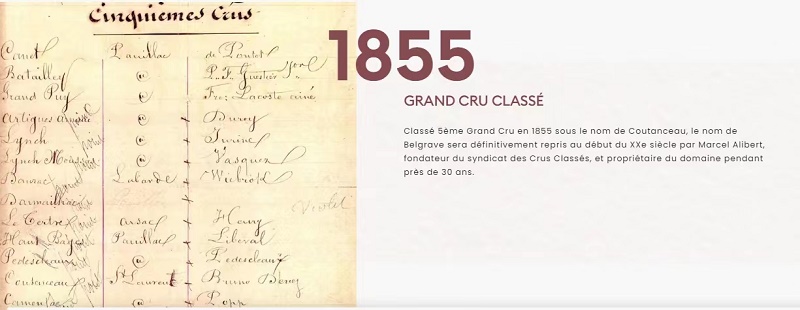 Cinquièmes Crus
Canet Pauillac de Pontet
Batailley (id)
Grand Puy (id) Lacoste aîné
Artigues Arnaud (id) Duroy
Lynch (id) Jurine
Lynch Moussas (id) Vasquez
Dauzac Labarde Wiebrok
Darmailhac
Violet
Le Tertre Arsac Henry
Haut Bages Pauillac Libéral
Pedesclaux (id) Pedesclaux
Coutanceau St Laurent Bruno Devez
Camensac (id) Popp
1855
GRAND CRU CLASSÉ
Classé 5ème Grand Cru en 1855 sous le nom de Coutanceau, le nom de
Belgrave sera définitivement repris au début du XXe siècle par Marcel Alibert,
fondateur du syndicat des Crus Classés, et propriétaire du domaine pendant
près de 30 ans.